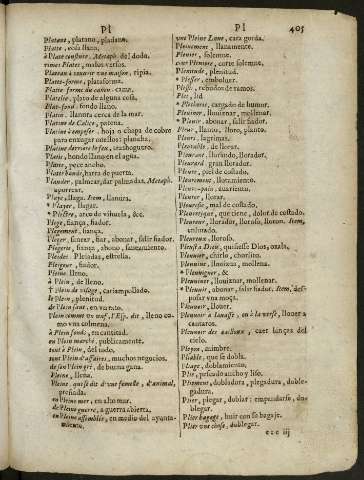 PI
PI
405
Platane, platano, pladano.
Platte, cosa llana.
à Plate couture, Metaph. del todo.
rimes Plates, malos versos.
Plateau à couurir une maison, ripia.
Platte-forme, plataforma.
Platte forme du canon
Platelée, plato de alguna cosa.
Plat-fond, fondo llano.
Platin, llanura cerca de la mar.
Platine de Calice, patena.
Platine à empeser, hoja o chapa de cobre
para enxugar cuellos: plancha.
Platine derriere le feu, trashoguero.
Platis, hondo llano en el agua.
Platte, pece ancho.
Platte bande, barra de puerta.
Plauder, palmear, dar palmadas. Metaph.
aporrear.
Playe, llaga. Item, llanura.
* Player, llagar.
* Plectre, arco de vihuela, &c.
Plege, fiança, fiador.
Plegement, fiança.
Pleger, fanear, fiar, abonar, salir fiador.
Plegerie, fiança, abono, saneamiento.
Pleiades, Pleiadas, estrella.
Pleigeur, fiador.
Plein, lleno.
à Plein, de lleno.
† Plein de visage, cariampollado.
le Plein, plenitud.
de Plein saut, en un rato.
Plein comme un œuf, l'Esp. dit, lleno co-
mo una colmena.
à Plein fonds, en cantidad.
en Plein marché, publicamente.
tout à Plein, del todo.
tout Plein d'affaires, muchos negocios.
de son Plein gré, de buena gana.
Pleine, llena.
Pleine, qui se dit d'une femelle, d'animal,
preñada.
en Pleine mer, en alto mar.
de Pleine guerre, a guerra abierta.
en Pleine assemblée, en medio del ayunta-
miento.
une Pleine Lune, cara gorda.
Pleinement, llanamente.
Plenier, solemne.
cour Pleniere, corte solemne.
Plenitude, plenitud.
† embolver.
Plessis, rebodos de ramos.
Plet,
* Plethorie, cargado de humor.
Pleuiner, llouiznar, mollenar.
* Pleuir, abonar, salir fiador.
Pleur, llanto, lloro, planto.
Pleurs, lagrimas.
Pleurable, de llorar.
Pleurant, llorando, llorador.
Pleurard, gran llorador.
Pleure, piel de costado.
Pleurement, lloramiento.
Pleure-pain, auariento.
Pleurer, llorar.
Pleuresie, mal de costado.
Pleuretique, que tiene, dolor de costado.
Pleureur, llorador, lloroso, lloron. Item,
enlutado.
Pleureux, lloroso.
Pleust à Dieu, quisiesse Dios, oxala.
Pleuuier, chirlo, chorlito.
Pleuuine, llouizna, mollena.
* Pleuuigner, &
* Pleuuiner, llouiznar, mollenar.
* Pleuuir, abonar, salir fiador. Item, des-
posar una moça.
Pleuuoir, llouer.
Pleuuoir à seaux, ou à la verse, llouer a
cantaros.
Pleuuoir des cailloux, caer lanças del
cielo.
Pleyon, mimbre.
Pliable, que se dobla.
Pliage, doblamiento.
Plié, pricado ancho y liso.
Pliement, dobladura, plegadura, doble-
gadura.
Plier, plegar, doblar: empandarse, do-
blegar.
Plier bagage, huir con su bagaje.
Plier une chose, doblegar.
eee iij